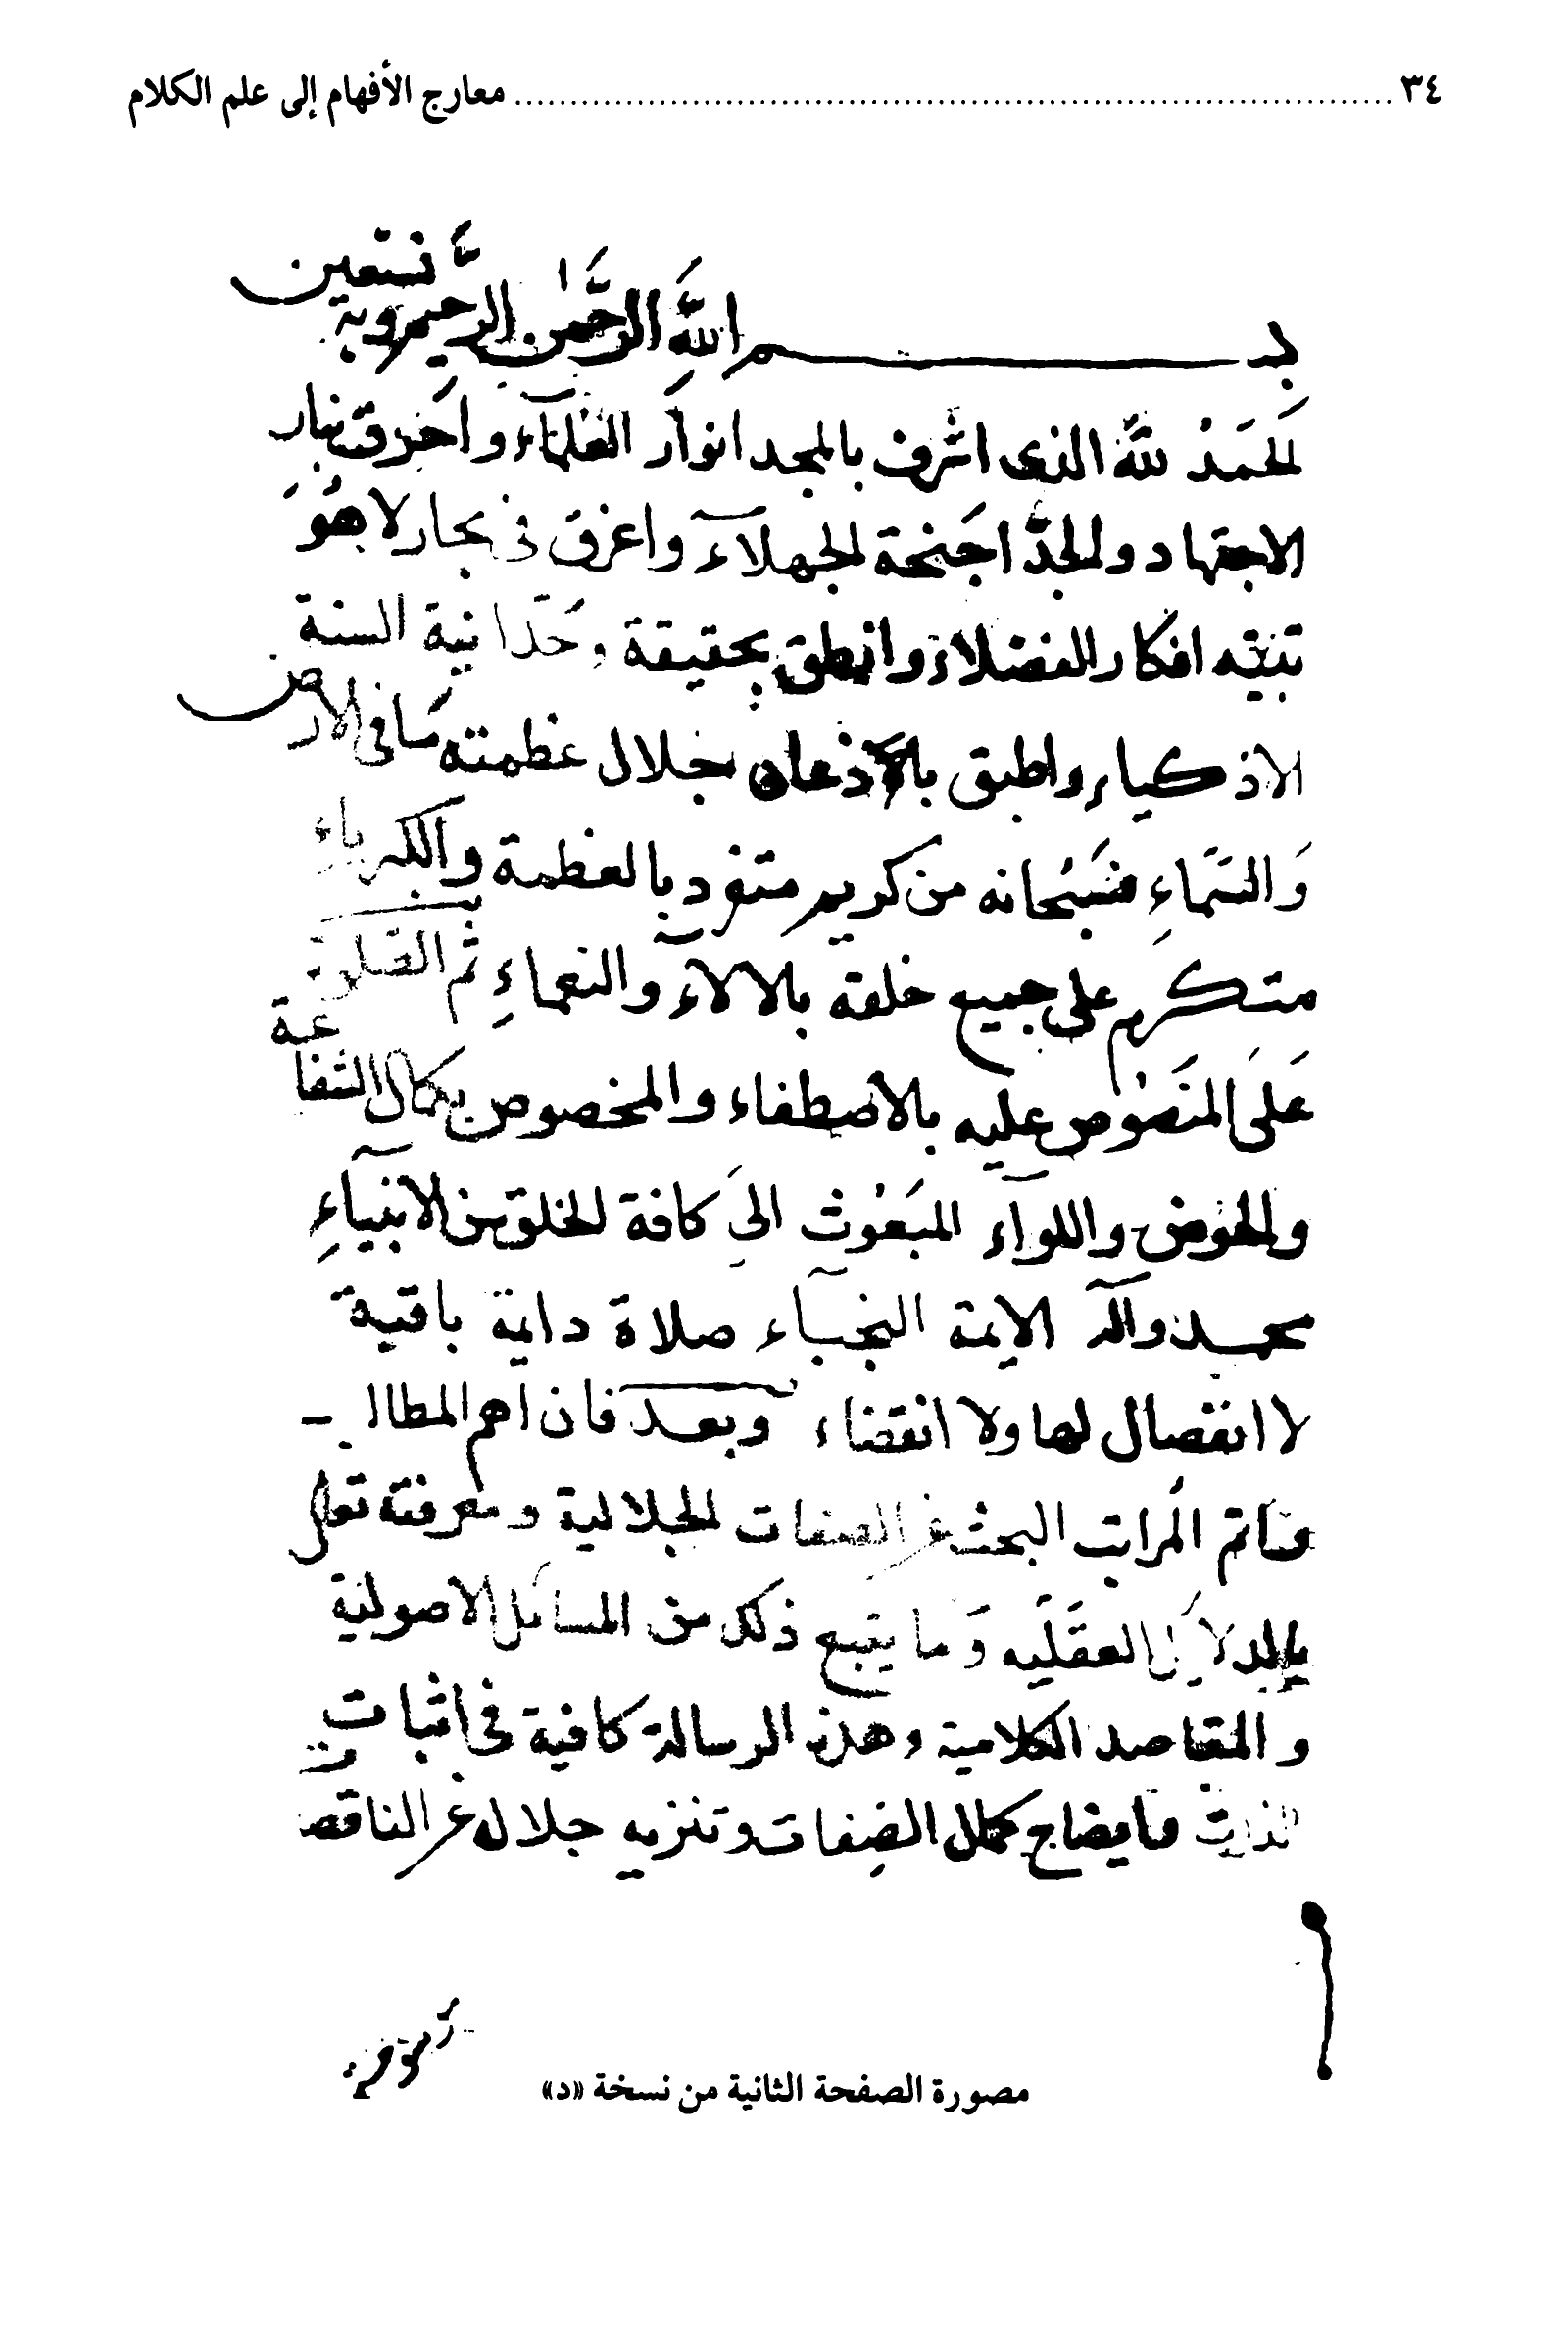 ٣٤ ........ معارج الأفهام إلى علم الكلام
بسم الله الرحمن الرحيم وبه نستعين
الحمد لله الذى اشرف بالمجد انوار العلماء واحرق بنار
الاجتهاد والجد اجنحة الجهلاء واغرق فى بحار لاهو
تيته افكار الفضلاء وانطق بحقيقة وحدانية السنة
الاذكياء واطبق بالاذعان بجلال عظمته سافى الارض
والسماء فسبحانه من كريم متفرد بالعظمة والكبرياء
متكرم على جميع خلقه بالالاء والنعماء ثم الصلوة
على المنصوص عليه بالاصطفاء والمخصوص بكمال الشفاعة
والحوض واللواء المبعوث الى كافة الخلق من الانبياء
محمد واله الايمة النجباء صلاة دايمة باقية
لا انفصال لها ولا انقضاء وبعد فان اهم المطالب
المراتب البحث عن الصفات الجلالية ومعرفته تعالى
بالدلايل العقليه وما يتبع ذلك من المسائل الاصولية
والمقاصد الكلامية وهذه الرسالة كافية فى اثبات
الذات كمال الصفات وتنزيه جلاله عن النا
مصورة الصفحة الثانية من نسخة «د»